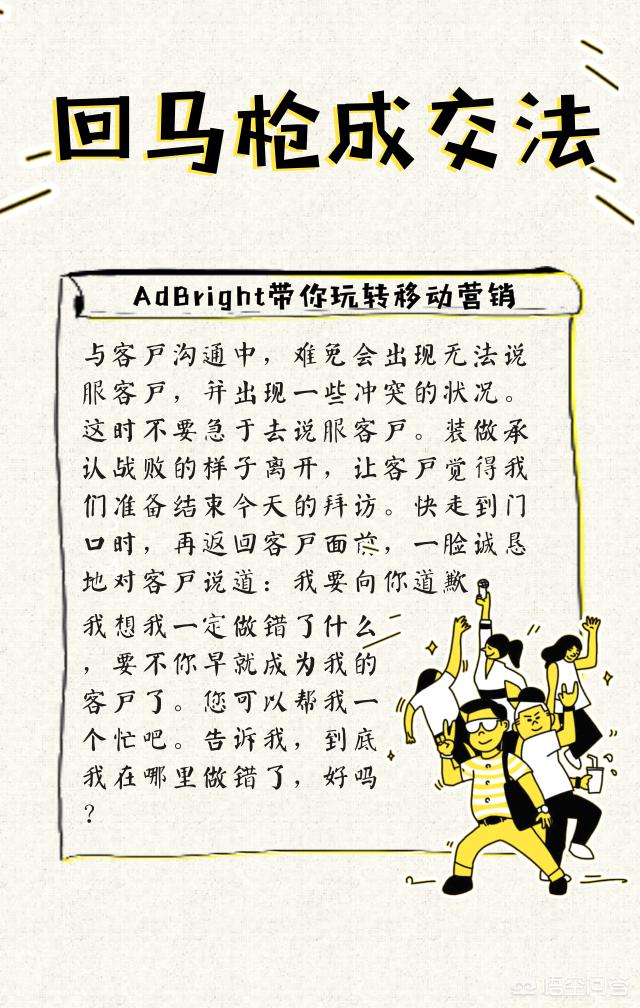 回马枪成交法
AdBright带你玩转移动营销
与客户沟通中，难免会出现无法说
服客户，并出现一些冲突的状况。
这时不要急于去说服客户。装做承
认战败的样子离开，让客户觉得我
们准备结束今天的拜访。快走到门
口时，再返回客户面前，一脸诚恳
地对客户说道：我要向你道歉
我想我一定做错了什么
，要不你早就成为我的
客户了。您可以帮我一
个忙吧。告诉我，到底
我在哪里做错了，好吗
？
悟空问答